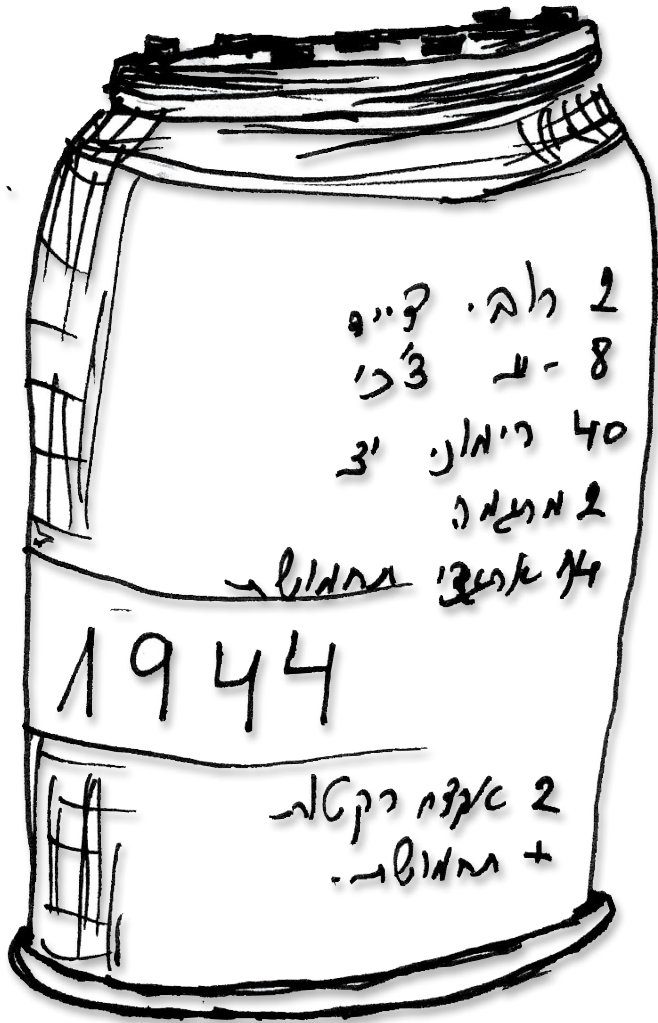 2 רובי ציד
8 - צ'כי
40 רימוני יד
2 מרגמה
14 ארגזי תחמושת
1944
2 אקדח רקטות
+ תחמושת.